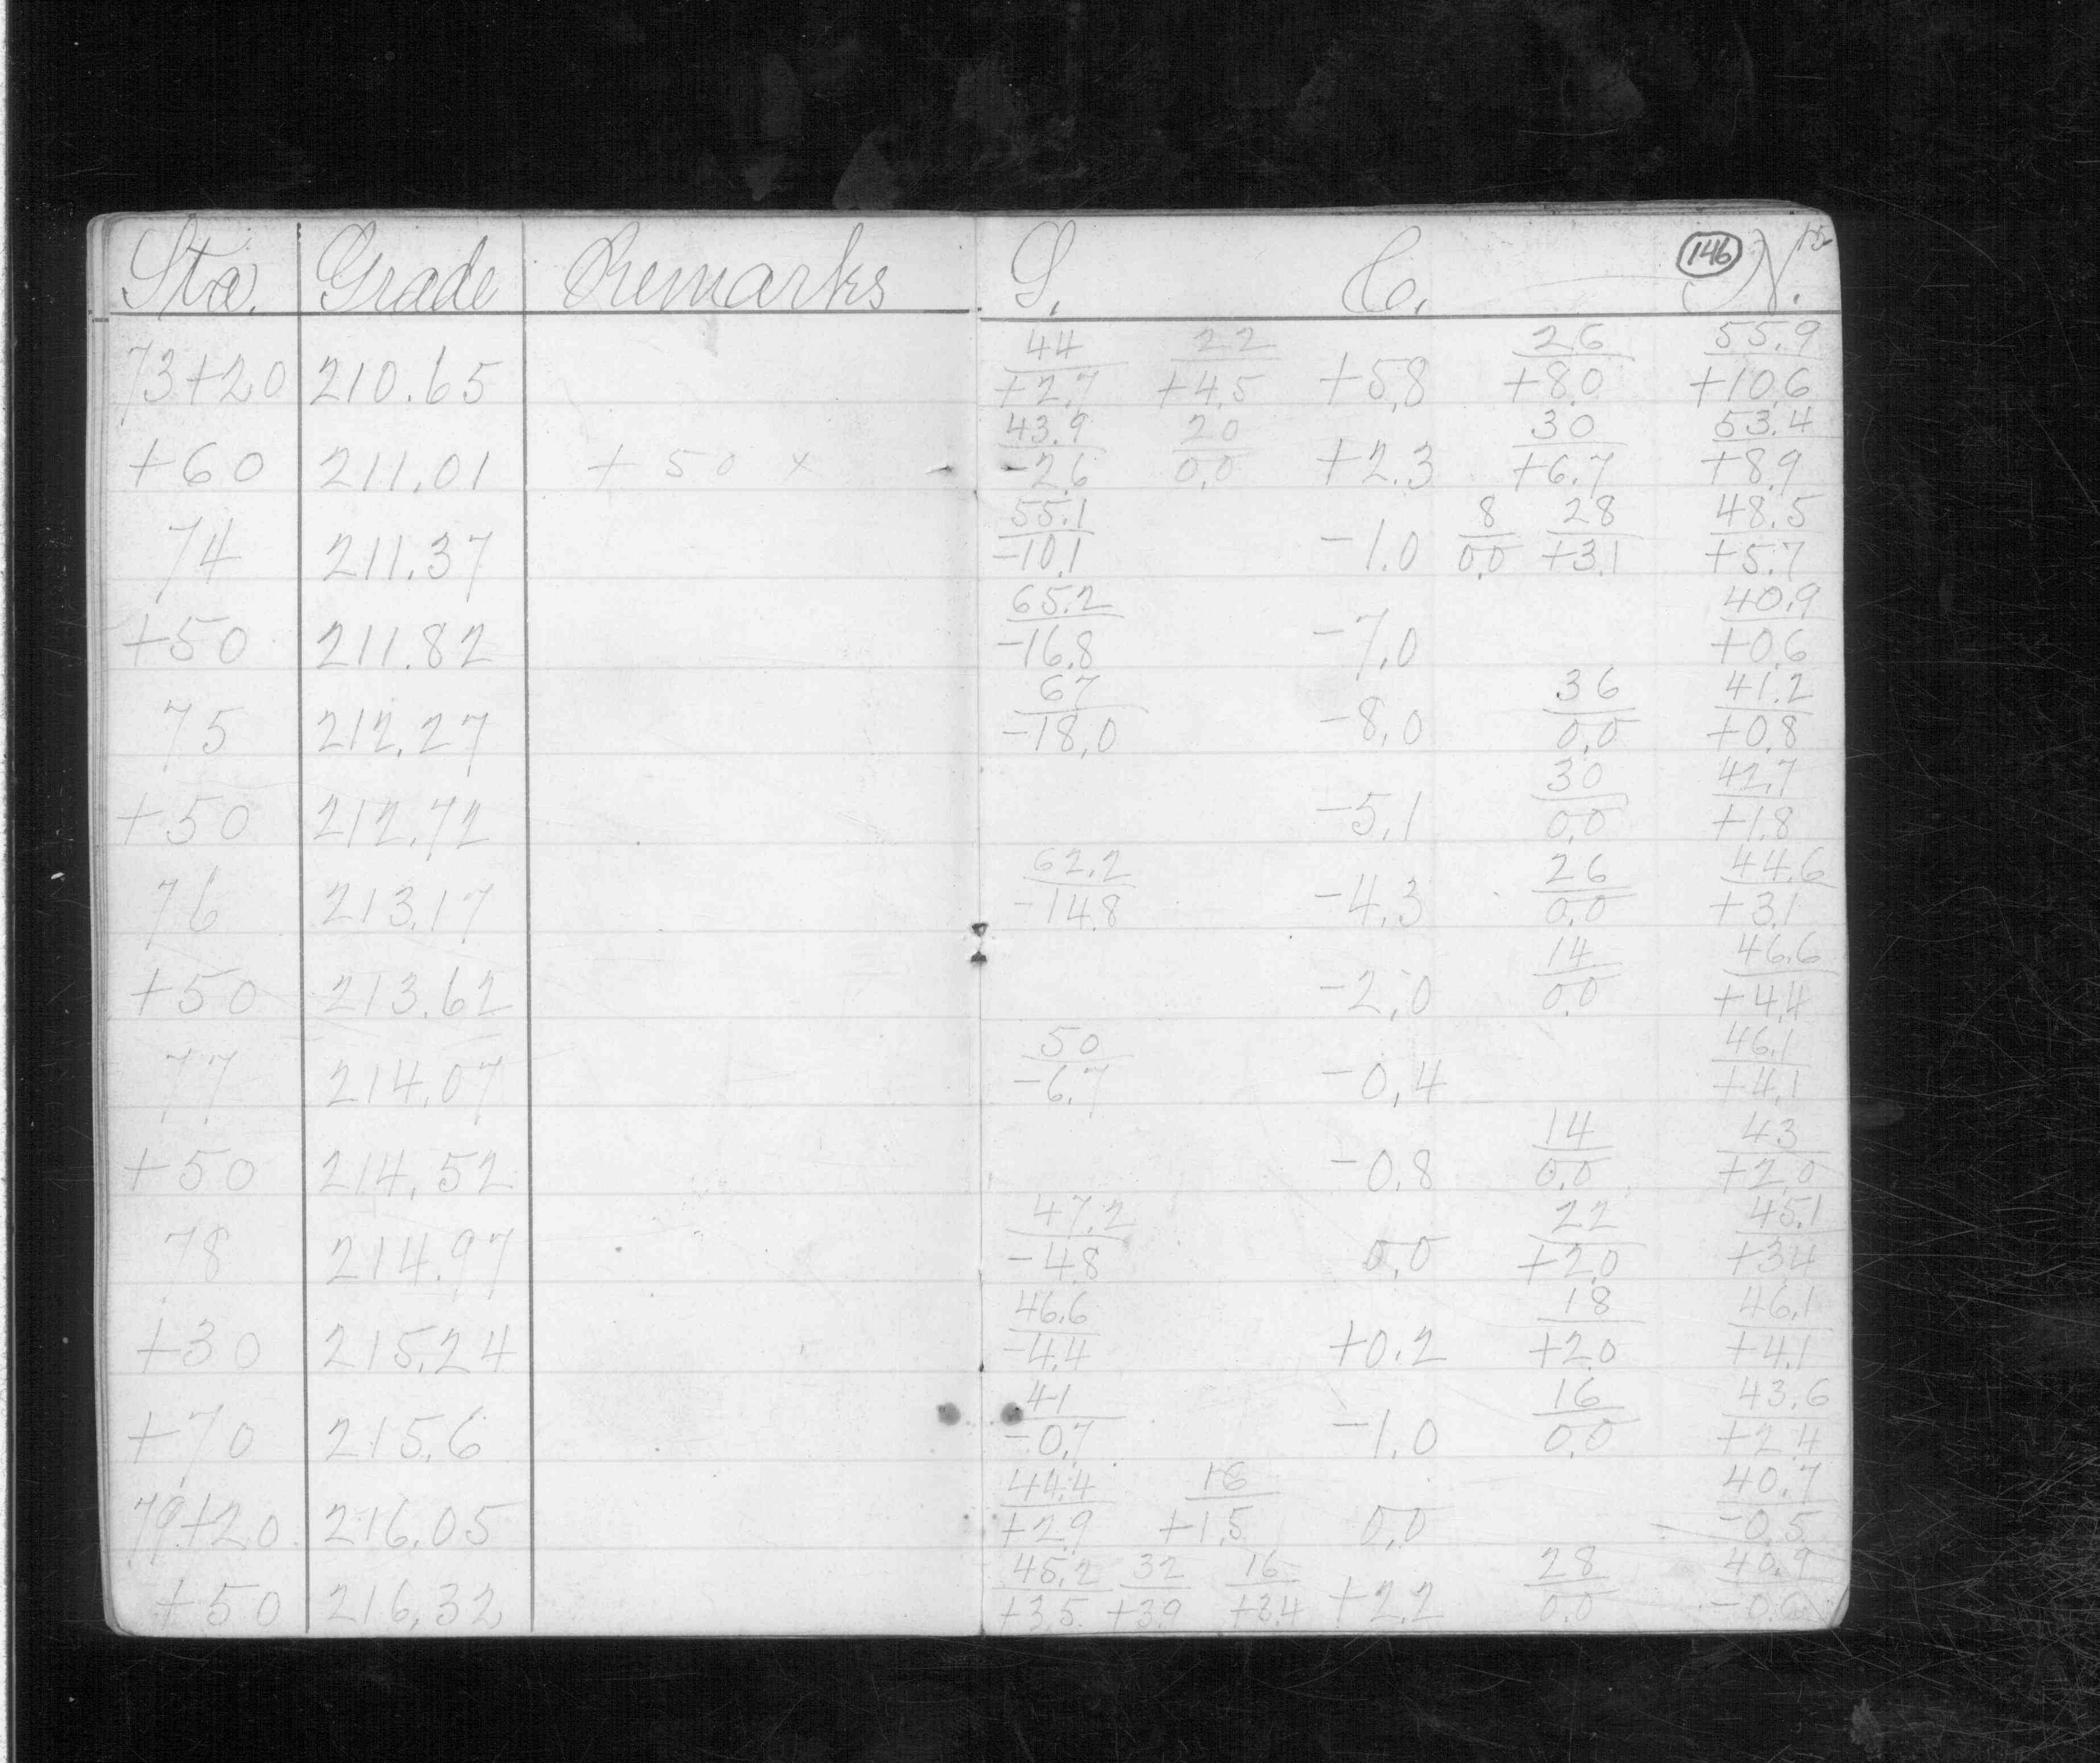 Sta. Grade Remarks S. C. 146 N. 15
44 22 26 55.9
73+20 210.65 +2.7 +4.5 +5.8 +8.0 +10.6
43.9 20 30 53.4
+60 211.01 +50 x -2.6 0.0 +2.3 +6.7 +8.9
55.1 8 28 48.5
74 211.37 -10.1 -1.0 0.0 +3.1 +5.7
65.2 40.9
+50 211.82 -16.8 -7.0 +0.6
67 36 41.2
75 212.27 -18.0 -8.0 0.0 +0.8
30 42.7
+50 212.72 -5.1 0.0 +1.8
62.2 26 44.6
76 213.17 -14.8 -4.3 0.0 +3.1
14 46.6
+50 213.62 -2.0 0.0 +4.4
50 46.1
77 214.07 -6.7 -0.4 +4.1
14 43
+50 214.52 -0.8 0.0 +2.0
47.2 22 45.1
78 214.97 -4.8 0.0 +2.0 +3.4
46.6 18 46.1
+30 215.24 -4.4 +0.2 +2.0 +4.1
41 16 43.6
+70 215.6 -0.7 -1.0 0.0 +2.4
44.4 16 40.7
79+20 216.05 +2.9 +1.5 0.0 -0.5
45.2 32 16 28 40.9
+50 216.32 +3.5 +3.9 +3.4 +2.2 0.0